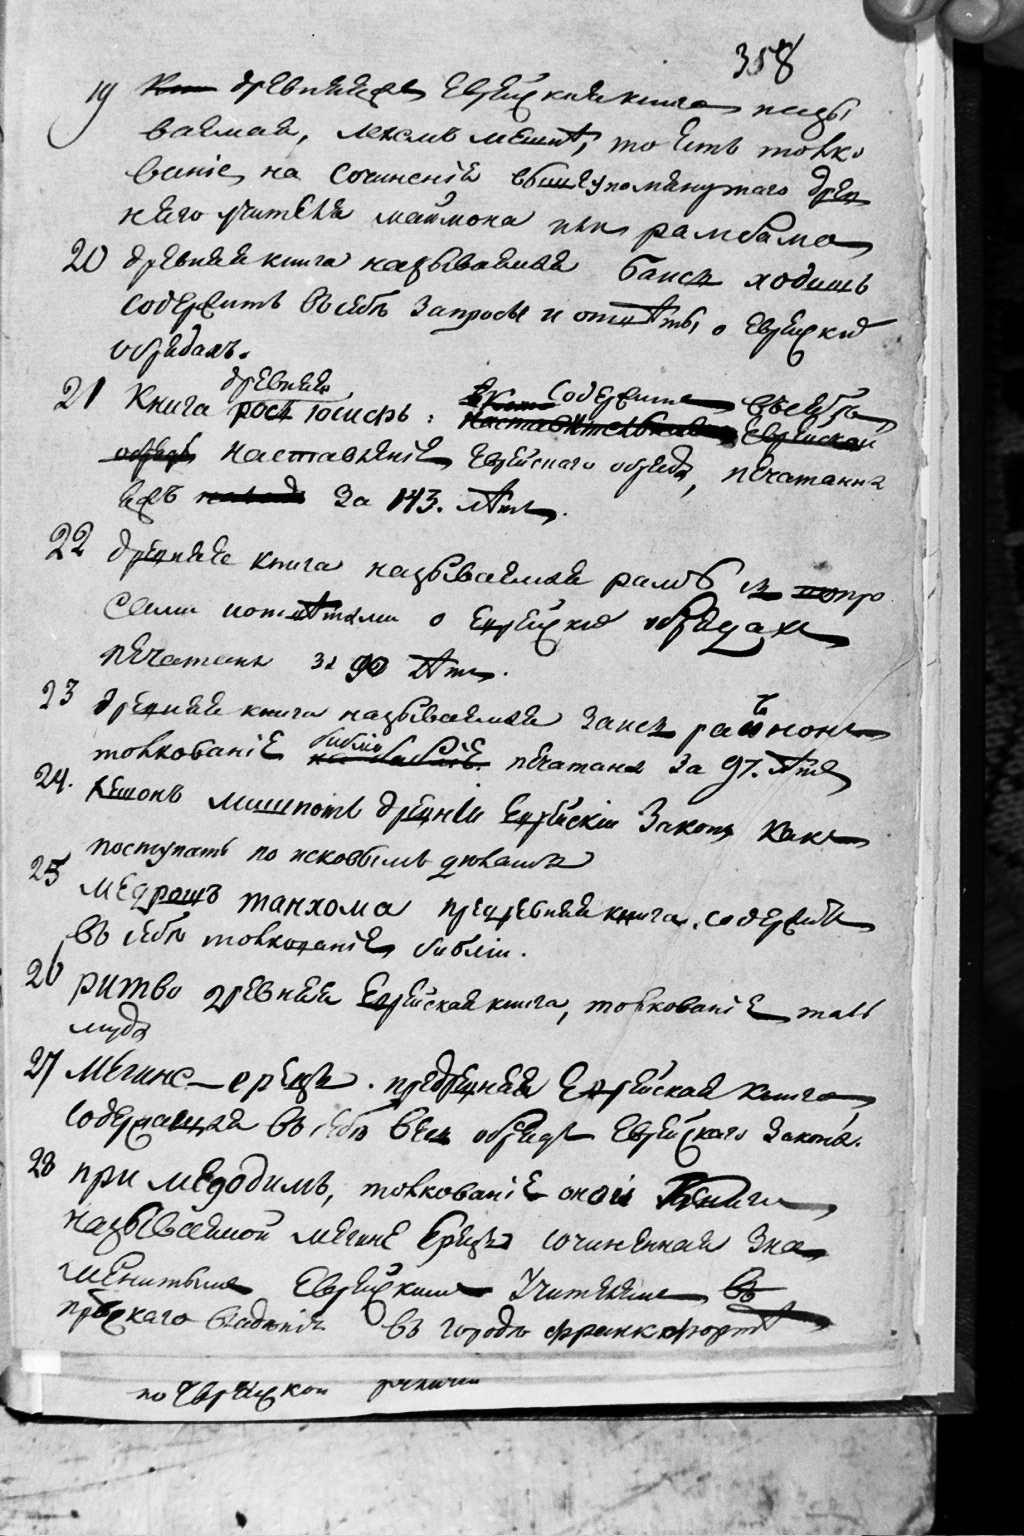 358
19 древняя Еврейская книга назы
ваемая, лехемъ мешнѣ, то есть толко
ваніе на сочиненій вышеупомянутаго древ
няго учителя маймона или рамбама
20 древняя книга называемая баисъ ходашъ
содержитъ въ себѣ запросы и отвѣты о Еврейскихъ
обрядахъ.
21 Книга древняя рошъ іосифъ: содержитъ въ себѣ
наставленіе Еврейскаго обряда, печатанна
уже за 143. лѣтъ.
22 древняя книга называемая рамбъ изъ вопро
сами и отвѣтами о Еврейскихъ обрядахъ
печатана за 90 лѣтъ.
23 древняя книга называемая заисъ раанонъ
толкованіе библіи печатана за 97. лѣтъ
24. хешонъ мишпотъ древній Еврейскій законъ какъ
поступать по исковымъ дѣламъ
25 медрашъ танхома предревняя книга, содержитъ
въ себѣ толкованіе библіи.
26 ритво древняя Еврейская книга, толкованіе таль
муда
27 Мегинс-ерецъ. предревняя Еврейская книга,
содержащая въ себѣ весь обрядъ Еврейскаго закона.
28 при медодимъ, толкованіе оной книги
называемой мегине ерецъ сочиненная зна
менитымъ Еврейскимъ учителемъ въ
прускаго владѣнія въ городѣ франкфортѣ
по Еврейской